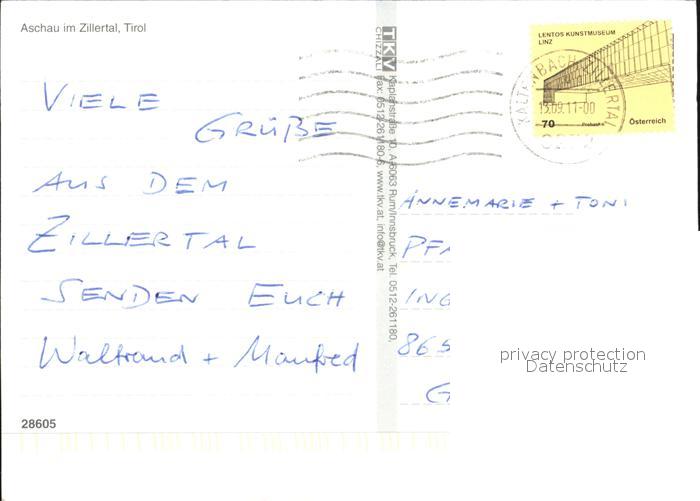 Aschau im Zillertal, Tirol
VIELE
GRÜßE
AUS DEM
ZILLERTAL
SENDEN EUCH
Waltraud + Manfred
28605
TKV
CHIZZALI
Kaplanstraße 10, A-6063 Rum/Innsbruck, Tel. 0512-261180,
Fax: 0512-261180-6, www.tkv.at, info@tkv.at
LENTOS KUNSTMUSEUM
LINZ
13.09.11-00
70
Österreich
ANNEMARIE + TONI
PF
ING
865
G
privacy protection
Datenschutz